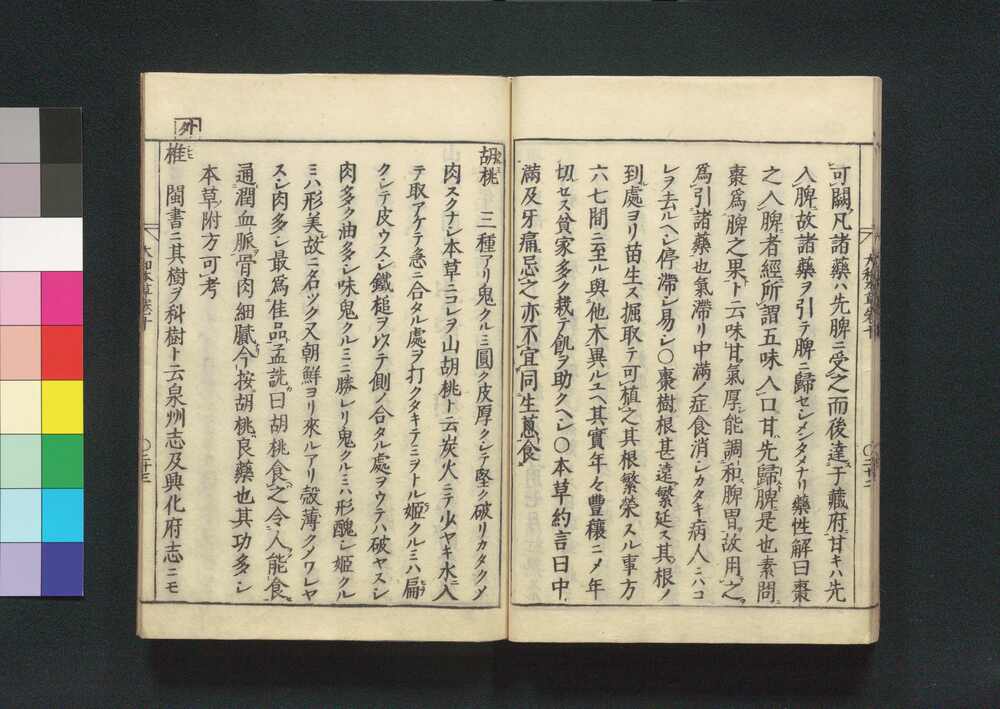 可闕凡諸藥ハ先脾ニ受之而後達于藏府甘キハ先
入脾故諸藥ヲ引テ脾ニ歸セシメンタメナリ藥性解曰棗
之入脾者經所謂五味入口甘先歸脾是也素問
棗爲脾之果ト云味甘氣厚能調和脾胃故用之
爲引諸藥也氣滯リ中滿ノ症食消シカタキ病人ニハコ
レヲ去ルヘシ停滯シ易シ○棗樹根甚遠繁延ス其根ノ
到處ヨリ苗生ス掘取テ可植之其根繁榮スル事方
六七間ニ至ル與他木異ルユヘ其實年々豐穰ニメ年
切セス貧家多ク栽テ飢ヲ助クヘシ○本草約言曰中
滿及牙痛忌之亦不宜同生蔥食
大和本草卷十
○二十二
胡桃 三種アリ鬼クルミ圓ク皮厚クシテ堅ク破リカタクメ
肉スクナシ本草ニコレヲ山胡桃ト云炭火ニテ少ヤキ水ニ入
テ取アケテ急ニ合タル處ヲ打クタキテミヲトル姬クルミハ扁
クシテ皮ウスシ鐵槌ヲ以テ側ノ合タル處ヲウテハ破ヤスシ
肉多ク油多シ味鬼クルミニ勝レリ鬼クルミハ形醜シ姬クル
ミハ形美故ニ名ツク又朝鮮ヨリ來ルアリ殼薄クメワレヤ
スシ肉多シ最爲佳品孟詵曰胡桃食之令人能食
通潤血脈骨肉細膩今按胡桃良藥也其功多シ
本草附方可考
外
椎 閩書ニ其樹ヲ科樹ト云泉州志及興化府志ニモ
大和本草卷十
○二十三